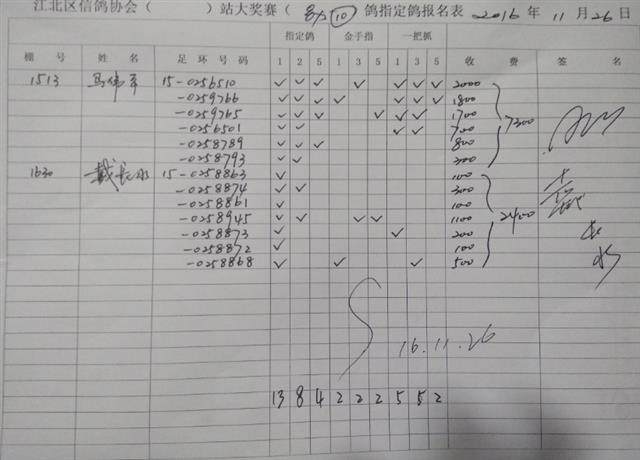 江北区信鸽协会（ ）站大奖赛（ ⑩ 鸽指定鸽报名表 2016 年 11 月 26 日
指定鸽 金手指 一把抓
棚 号 姓 名 足 环 号 码 1 2 5 1 3 5 1 3 5 收 费 签 名
1513 马伟军 15-0256510 ✓ ✓ ✓ ✓ ✓ ✓ ✓ 2000
-0259766 ✓ ✓ ✓ ✓ ✓ ✓ ✓ 1800
-0259765 ✓ ✓ ✓ ✓ ✓ ✓ 1700 7300
-0256501 ✓ ✓ ✓ ✓ 700
-0258789 ✓ ✓ ✓ 800
-0258793 ✓ ✓ 300
1630 戴长水 15-0258863 ✓ 100
-0258874 ✓ ✓ 300
-0258861 ✓ 100 2400
-0258945 ✓ ✓ ✓ ✓ 1100
-0258873 ✓ ✓ 200
-0258872 ✓ 100
-0258868 ✓ ✓ ✓ 500
16.11.26
13 8 4 2 2 2 5 5 2